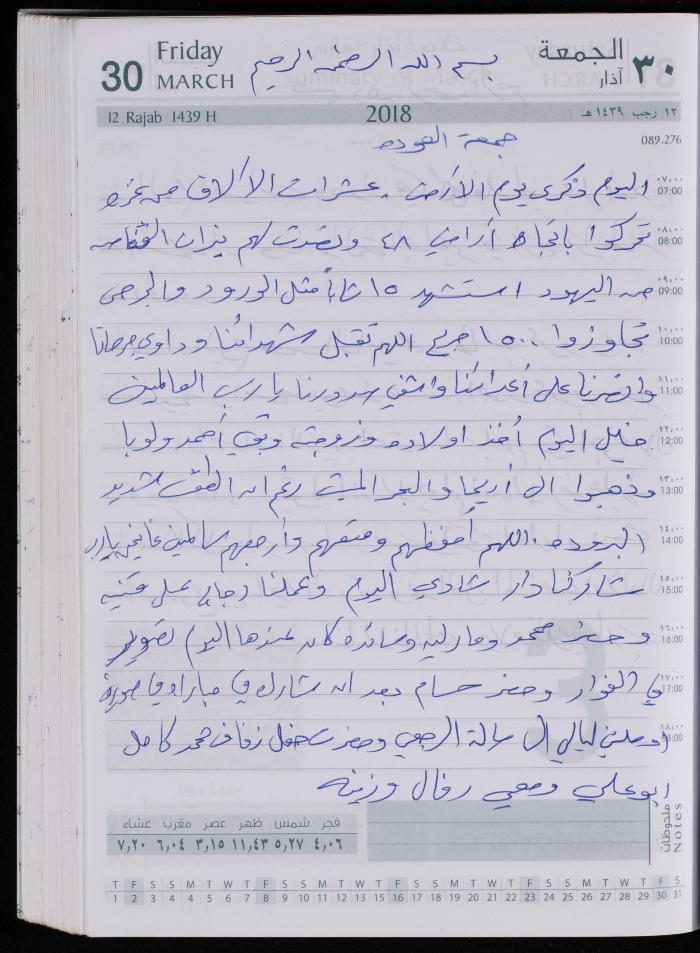 30 Friday MARCH
بسم الله الرحمن الرحيم
الجمعة ٣٠ آذار
12 Rajab 1439 H
2018
١٢ رجب ١٤٣٩ هـ
089.276
جمعة العوده
٠٧:٠٠ 07:00
اليوم ذكرى يوم الأرض . عشرات الآلاف من غزه
٠٨:٠٠ 08:00
تحركوا باتجاه أراضي ٤٨ وتصدت لهم نيران القناصه
٠٩:٠٠ 09:00
من اليهود استشهد ١٥ شاباً مثل الورود والجرحى
١٠:٠٠ 10:00
تجاوزوا ١٥٠٠ جريح اللهم تقبل شهدائنا وداوي جرحانا
١١:٠٠ 11:00
وانصرنا على أعدائنا واشفي صدورنا يا رب العالمين
١٢:٠٠ 12:00
خليل اليوم أخذ اولاده وزوجته وبقي أحمد ولويا
١٣:٠٠ 13:00
وذهبوا الى أريحا والبحر الميت رغم ان الطقس شديد
١٤:٠٠ 14:00
البروده . اللهم احفظهم ومتعهم وأرجعهم سالمين غانمين يارب
١٥:٠٠ 15:00
شاركنا دار شادي اليوم وعملنا دجاج عمل
١٦:٠٠ 16:00
وحضر محمد ومارليه وسائده كان عندها اليوم تصوير
١٧:٠٠ 17:00
في الفوار وحضر حسام بعد ان شارك في مباراه في صوريف
١٨:٠٠ 18:00
اوصلني ليالي الى صالة الرجعي وحضرت حفل زفاف محمد كامل
ابو علي ومعي رفال وزينه
ملحوظات Notes
فجر شمس ظهر عصر مغرب عشاء
٤,٠٦ ٥,٢٧ ١١,٤٣ ٣,١٥ ٦,٠٤ ٧,٢٠
T F S S M T W T F S S M T W T F S S M T W T F S S M T W T F S
1 2 3 4 5 6 7 8 9 10 11 12 13 14 15 16 17 18 19 20 21 22 23 24 25 26 27 28 29 30 31